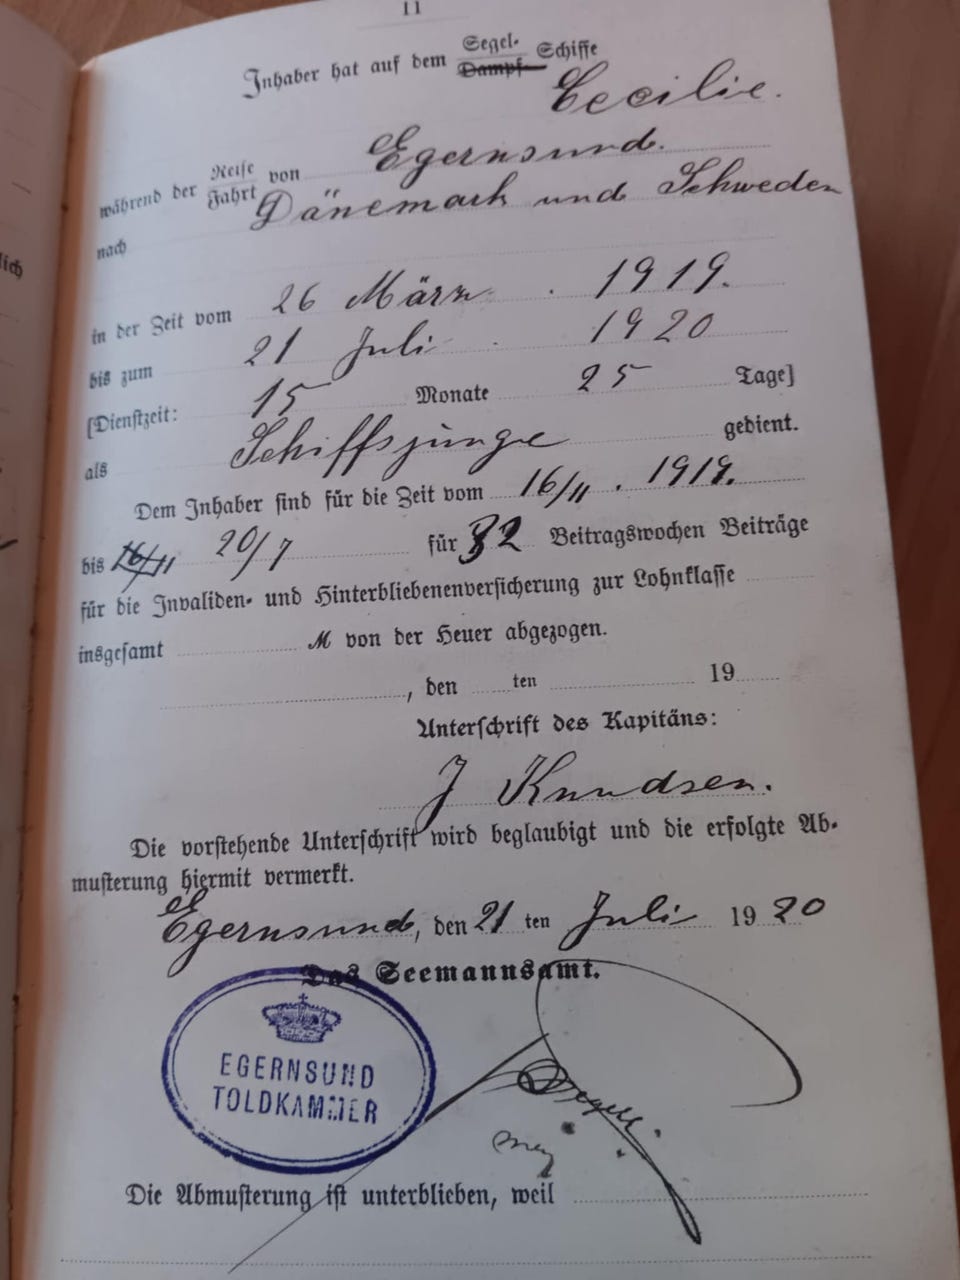 11
Inhaber hat auf dem Segel- Dampf- Schiffe
Cecilie.
während der Reise Fahrt von Egernsund.
nach Dänemark und Schweden
in der Zeit vom 26 März. 1919.
bis zum 21 Juli. 1920
[Dienstzeit: 15 Monate 25 Tage]
als Schiffsjunge gedient.
Dem Inhaber sind für die Zeit vom 16/11. 1919.
bis 16/11 20/7 für 32 Beitragswochen Beiträge
für die Invaliden- und Hinterbliebenenversicherung zur Lohnklasse
insgesamt M von der Heuer abgezogen.
, den ten 19
Unterschrift des Kapitäns:
J Knudsen.
Die vorstehende Unterschrift wird beglaubigt und die erfolgte Ab-
musterung hiermit vermerkt.
Egernsund, den 21 ten Juli 1920
Das Seemannsamt.
EGERNSUND
TOLDKAMMER
Die Abmusterung ist unterblieben, weil
lich